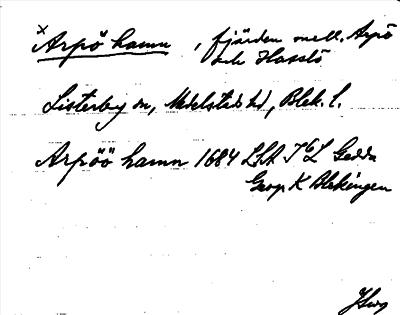 x
Arpö hamn, fjärden mell. Arpö
och Hasslö
Listerby sn, Medelstads hd, Blek. l.
Arpöö hamn 1684 LSA Gedda
Geogr K Blekingen